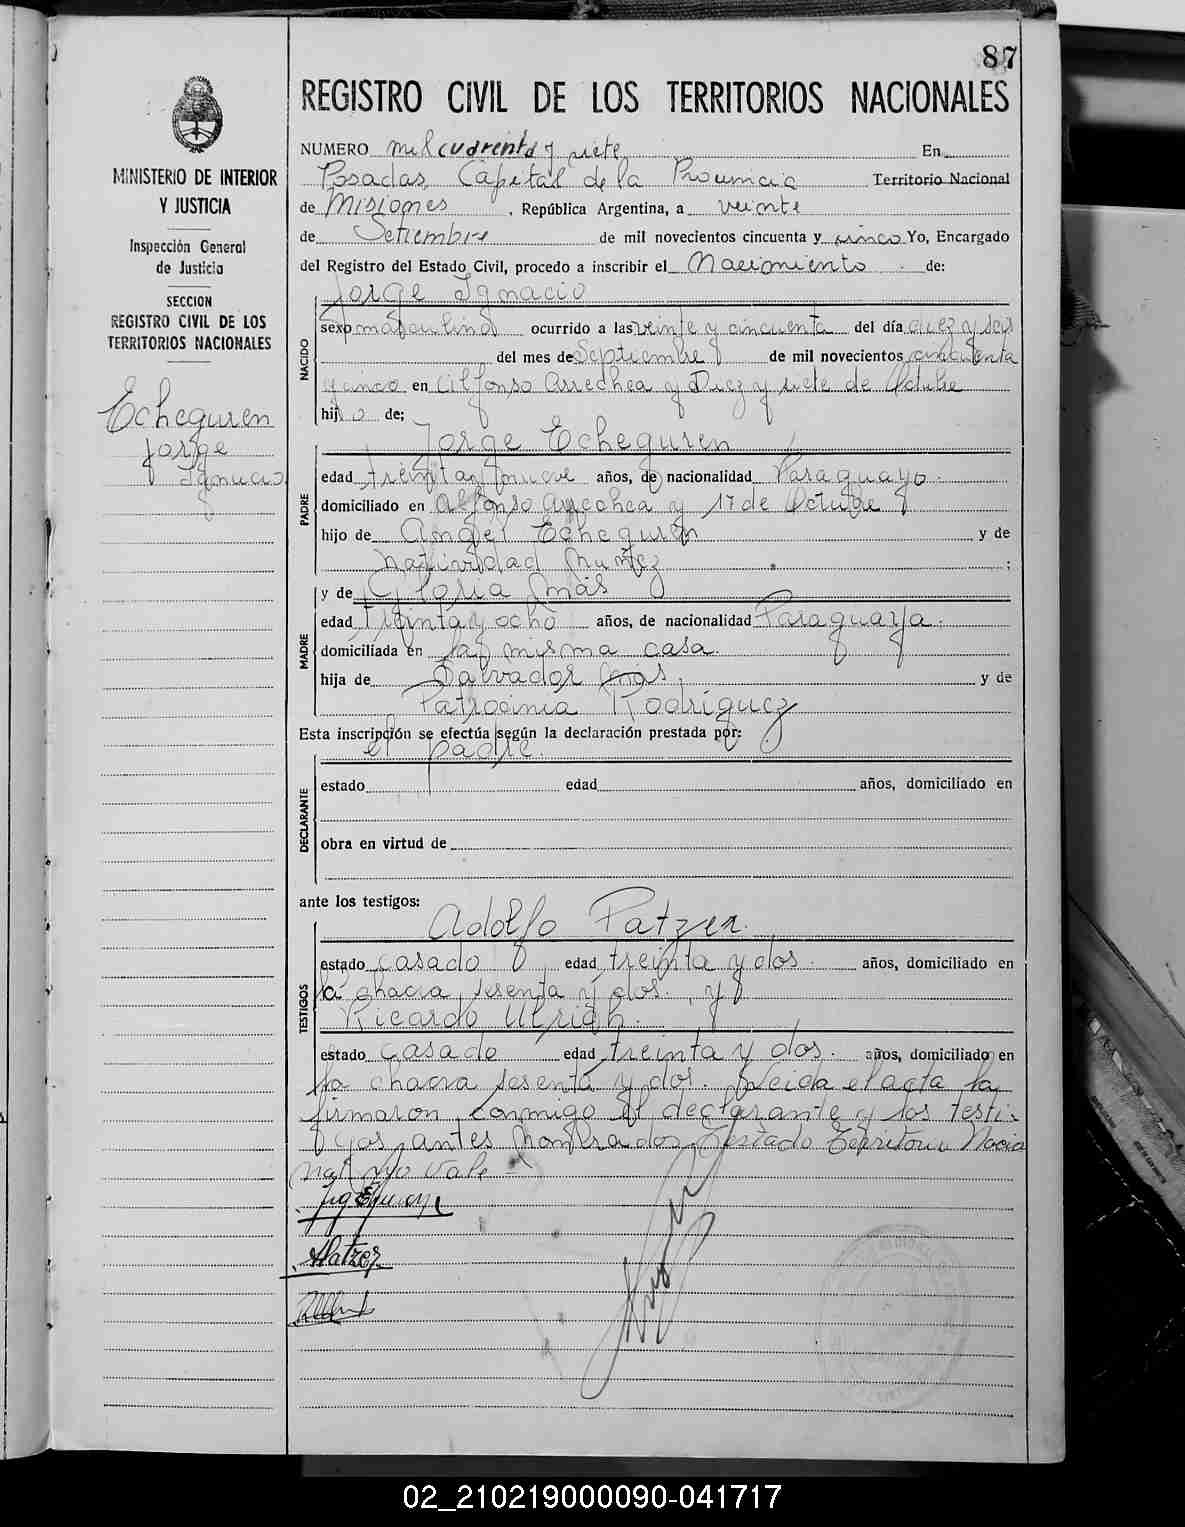 87
REGISTRO CIVIL DE LOS TERRITORIOS NACIONALES
MINISTERIO DE INTERIOR
Y JUSTICIA
Inspección General
de Justicia
SECCION
REGISTRO CIVIL DE LOS
TERRITORIOS NACIONALES
Echeguren
Jorge
Ignacio
NUMERO mil cuarenta y siete En
Posadas, Capital de la Provincia Territorio Nacional
de Misiones, República Argentina, a veinte
de Setiembre de mil novecientos cincuenta y cinco Yo, Encargado
del Registro del Estado Civil, procedo a inscribir el Nacimiento de:
Jorge Ignacio
NACIDO
sexo masculino ocurrido a las veinte y cincuenta del día diez y seis
del mes de Septiembre de mil novecientos cincuenta
y cinco en Alfonso Arrechea y Diez y siete de Octubre
hijo de;
Jorge Echeguren
PADRE
edad treinta y nueve años, de nacionalidad Paraguayo.
domiciliado en Alfonso Arrechea y 17 de Octubre
hijo de Angel Echeguren y de
Natividad Nuñez ;
y de Gloria Mas
MADRE
edad treinta y ocho años, de nacionalidad Paraguaya.
domiciliada en la misma casa.
hija de Salvador Mas, y de
Patrocinia Rodríguez
Esta inscripción se efectúa según la declaración prestada por:
el padre.
DECLARANTE
estado edad años, domiciliado en
obra en virtud de
ante los testigos:
Adolfo Patzer.
TESTIGOS
estado casado edad treinta y dos. años, domiciliado en
la chacra sesenta y dos. y
Ricardo Ulrich.
estado casado edad treinta y dos. años, domiciliado en
la chacra sesenta y dos. Leida el acta la
firmaron conmigo el declarante y los testi-
gos antes nombrados. Testado Territorio Nacio
nal no vale
APatzer
02_210219000090-041717